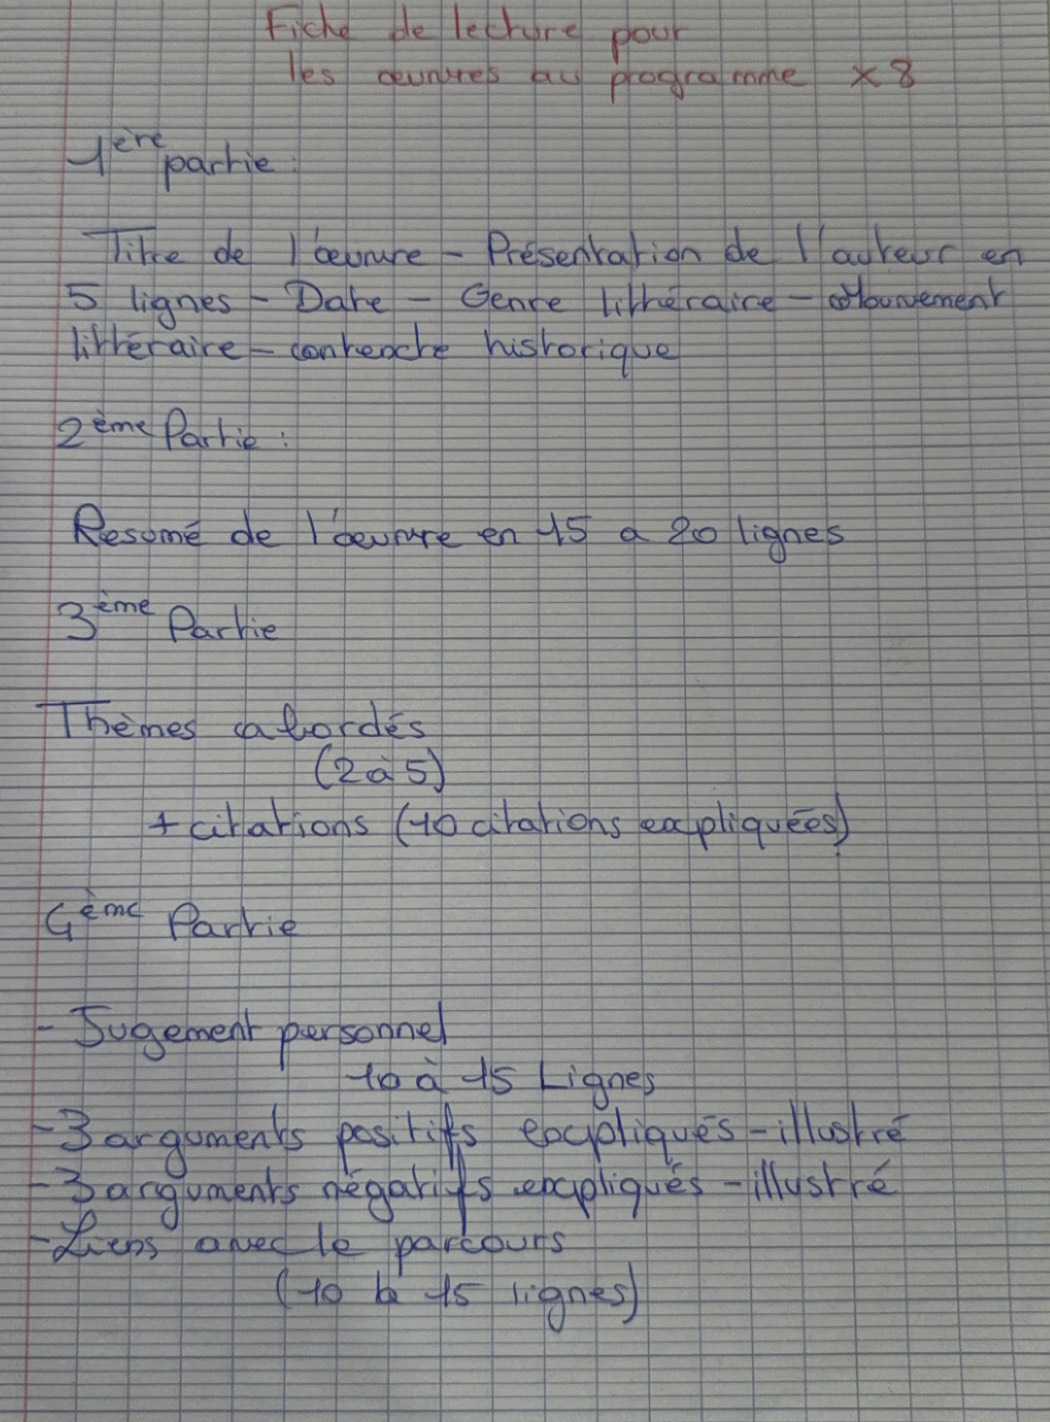 Fiche de lecture pour
les œuvres au programme x 8
1ère partie :
Titre de l'œuvre - Présentation de l'auteur en
5 lignes - Date - Genre littéraire - Mouvement
littéraire - contexte historique
2ème Partie :
Resumé de l'œuvre en 15 a 20 lignes
3ème Partie
Thèmes abordés
(2 à 5)
+ citations (10 citations expliquées)
4ème Partie
- Jugement personnel
10 à 15 Lignes
- 3 arguments positifs expliqués - illustré
- 3 arguments négatifs expliqués - illustré
- Liens avec le parcours
(10 à 15 lignes)